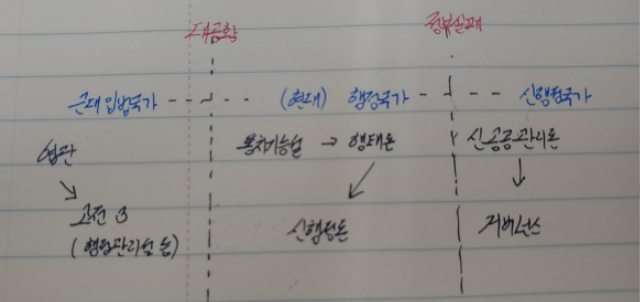 대공황 정부실패
근대 입법국가 - - - - - - (현대) 행정국가 - - - - - 신행정국가
엽관 통치기능설 → 행태론 신공공관리론
↘ ↙ ↓
고전 3 신행정론 거버넌스
(행정관리설 등)